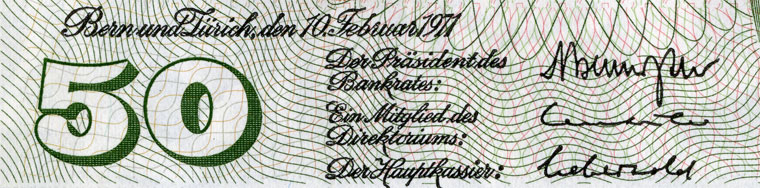 Bern und Zürich, den 10. Februar 1971
50
Der Präsident des
Bankrates:
Ein Mitglied des
Direktoriums:
Der Hauptkassier: